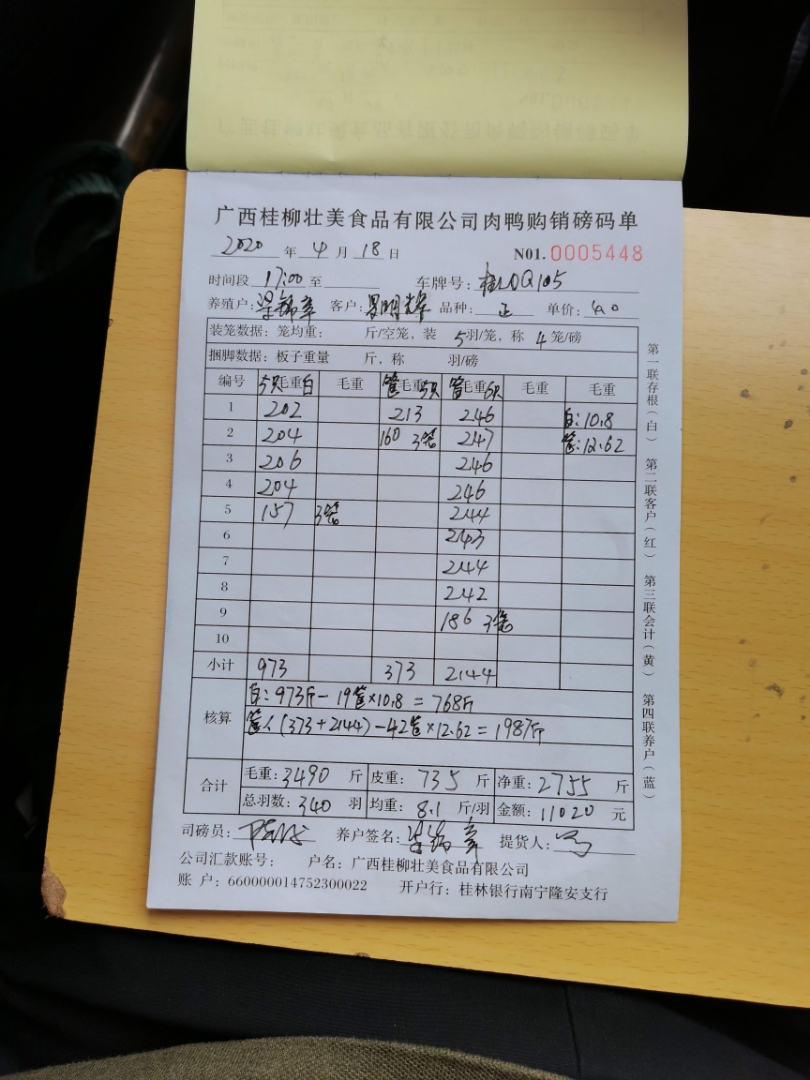 广西桂柳壮美食品有限公司肉鸭购销磅码单
2020 年 4 月 18 日 N01. 0005448
时间段 17:00 至 车牌号: 桂LDQ105
养殖户: 梁锦章 客户: 明辉 品种: 正 单价: 4.0
装笼数据: 笼均重: 斤/空笼, 装 5 羽/笼, 称 4 笼/磅
捆脚数据: 板子重量 斤, 称 羽/磅
编号 5只毛重白 毛重 毛重5只 毛重6只 毛重 毛重
1 202 213 246 白: 10.8
2 204 160 3笼 247 12.62
3 206 246
4 204 246
5 157 3笼 244
6 243
7 244
8 242
9 186 3笼
10
小计 973 373 2144
核算 白: 973斤 - 19 × 10.8 = 768斤
(373 + 2144) - 42 × 12.62 = 1987斤
合计 毛重: 3490 斤 皮重: 735 斤 净重: 2755 斤
总羽数: 340 羽 均重: 8.1 斤/羽 金额: 11020 元
司磅员: 养户签名: 梁锦章 提货人:
公司汇款账号: 户名: 广西桂柳壮美食品有限公司
账 户: 660000014752300022 开户行: 桂林银行南宁隆安支行
第一联存根(白) 第二联客户(红) 第三联会计(黄) 第四联养户(蓝)